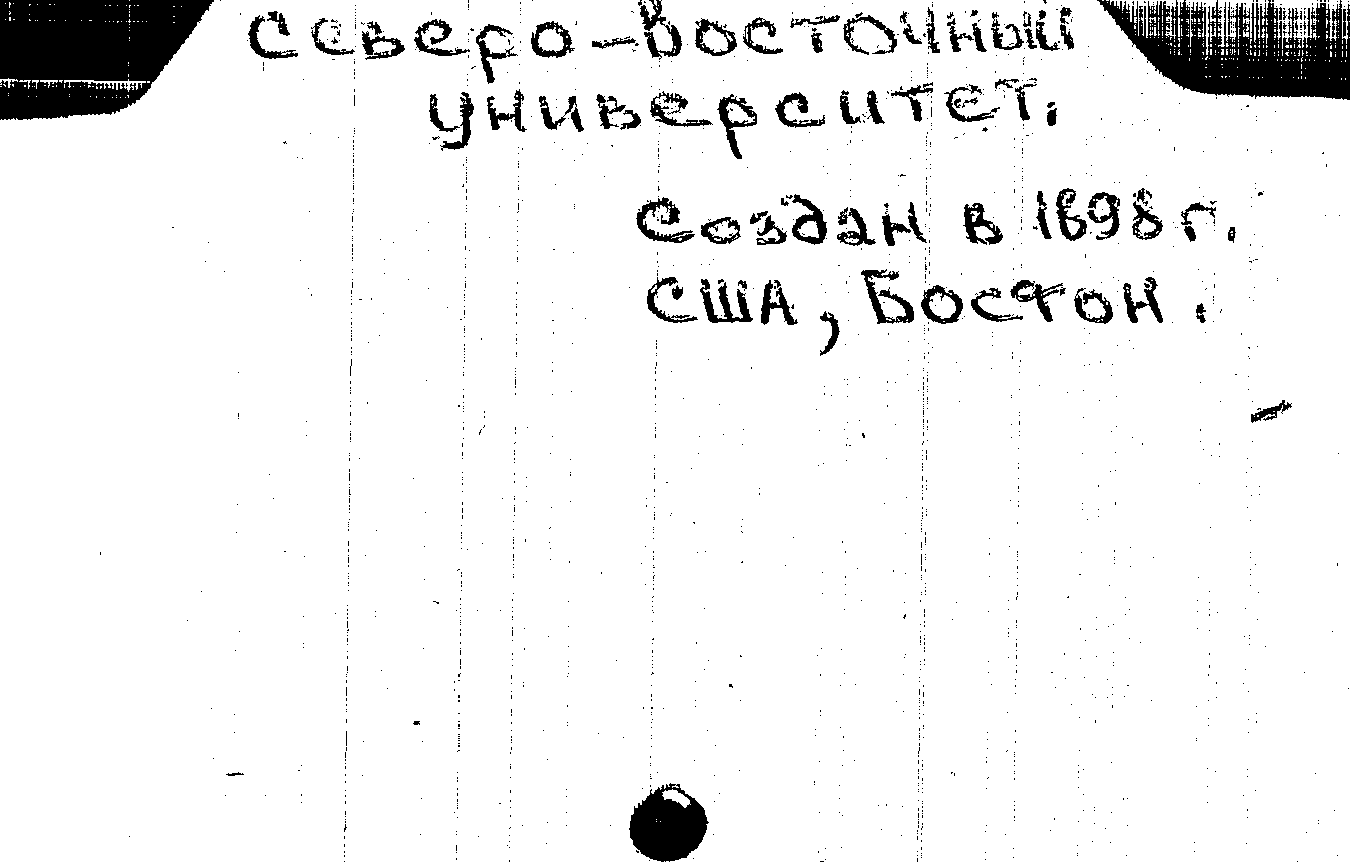 Северо-Восточный
университет.
Создан в 1898 г.
США, Бостон.